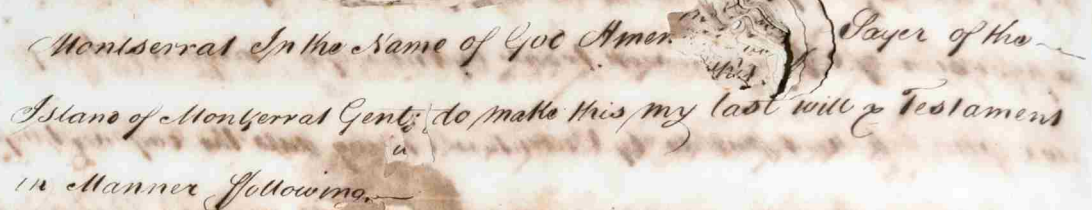 Montserrat In the Name of God Amen Sayer of the
Island of Montserrat Gent: do make this my last will & Testament
in Manner following.